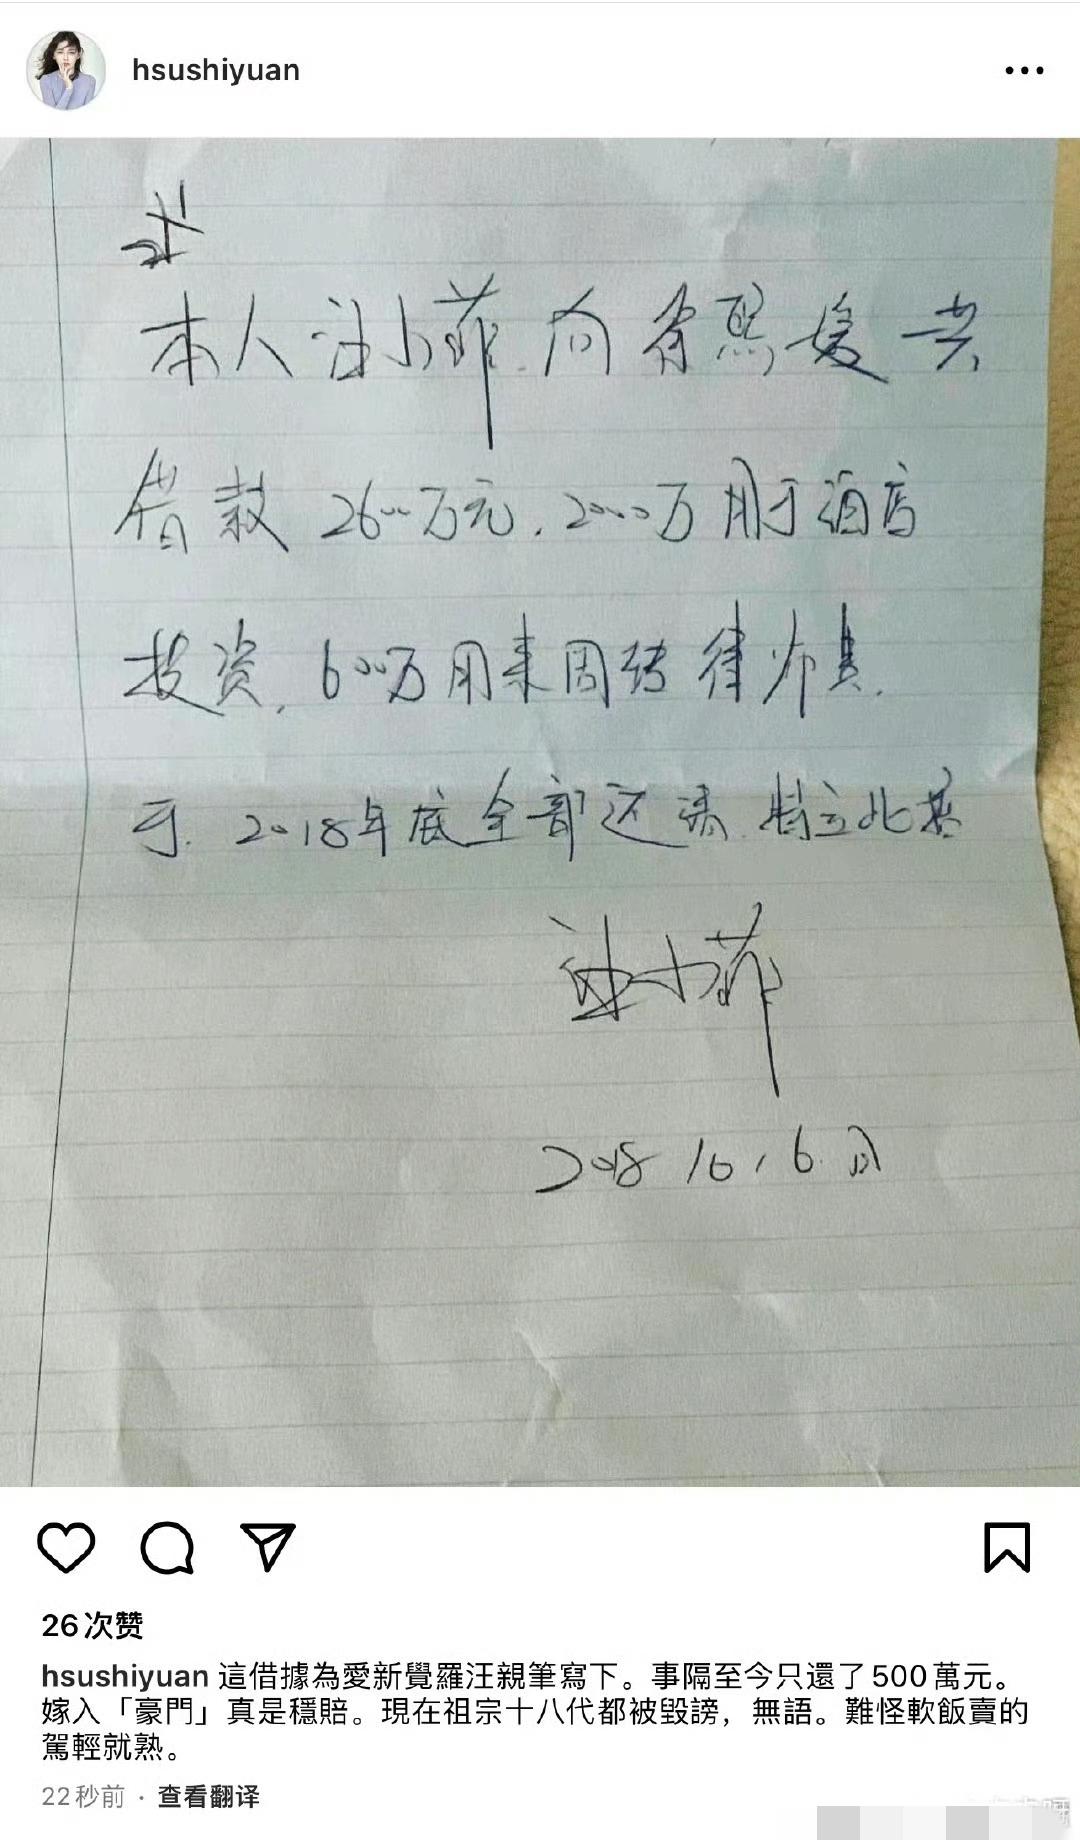 hsushiyuan
本人汪小菲.向徐熙媛共
借款2600万元.2000万用于酒店
投资.600万用来周转律师费.
于.2018年底全部还清.特立此据
汪小菲
2018 10.6.日
26次赞
hsushiyuan 這借據為愛新覺羅汪親筆寫下。事隔至今只還了500萬元。
嫁入「豪門」真是穩賠。現在祖宗十八代都被毀謗，無語。難怪軟飯賣的
駕輕就熟。
22秒前 · 查看翻译